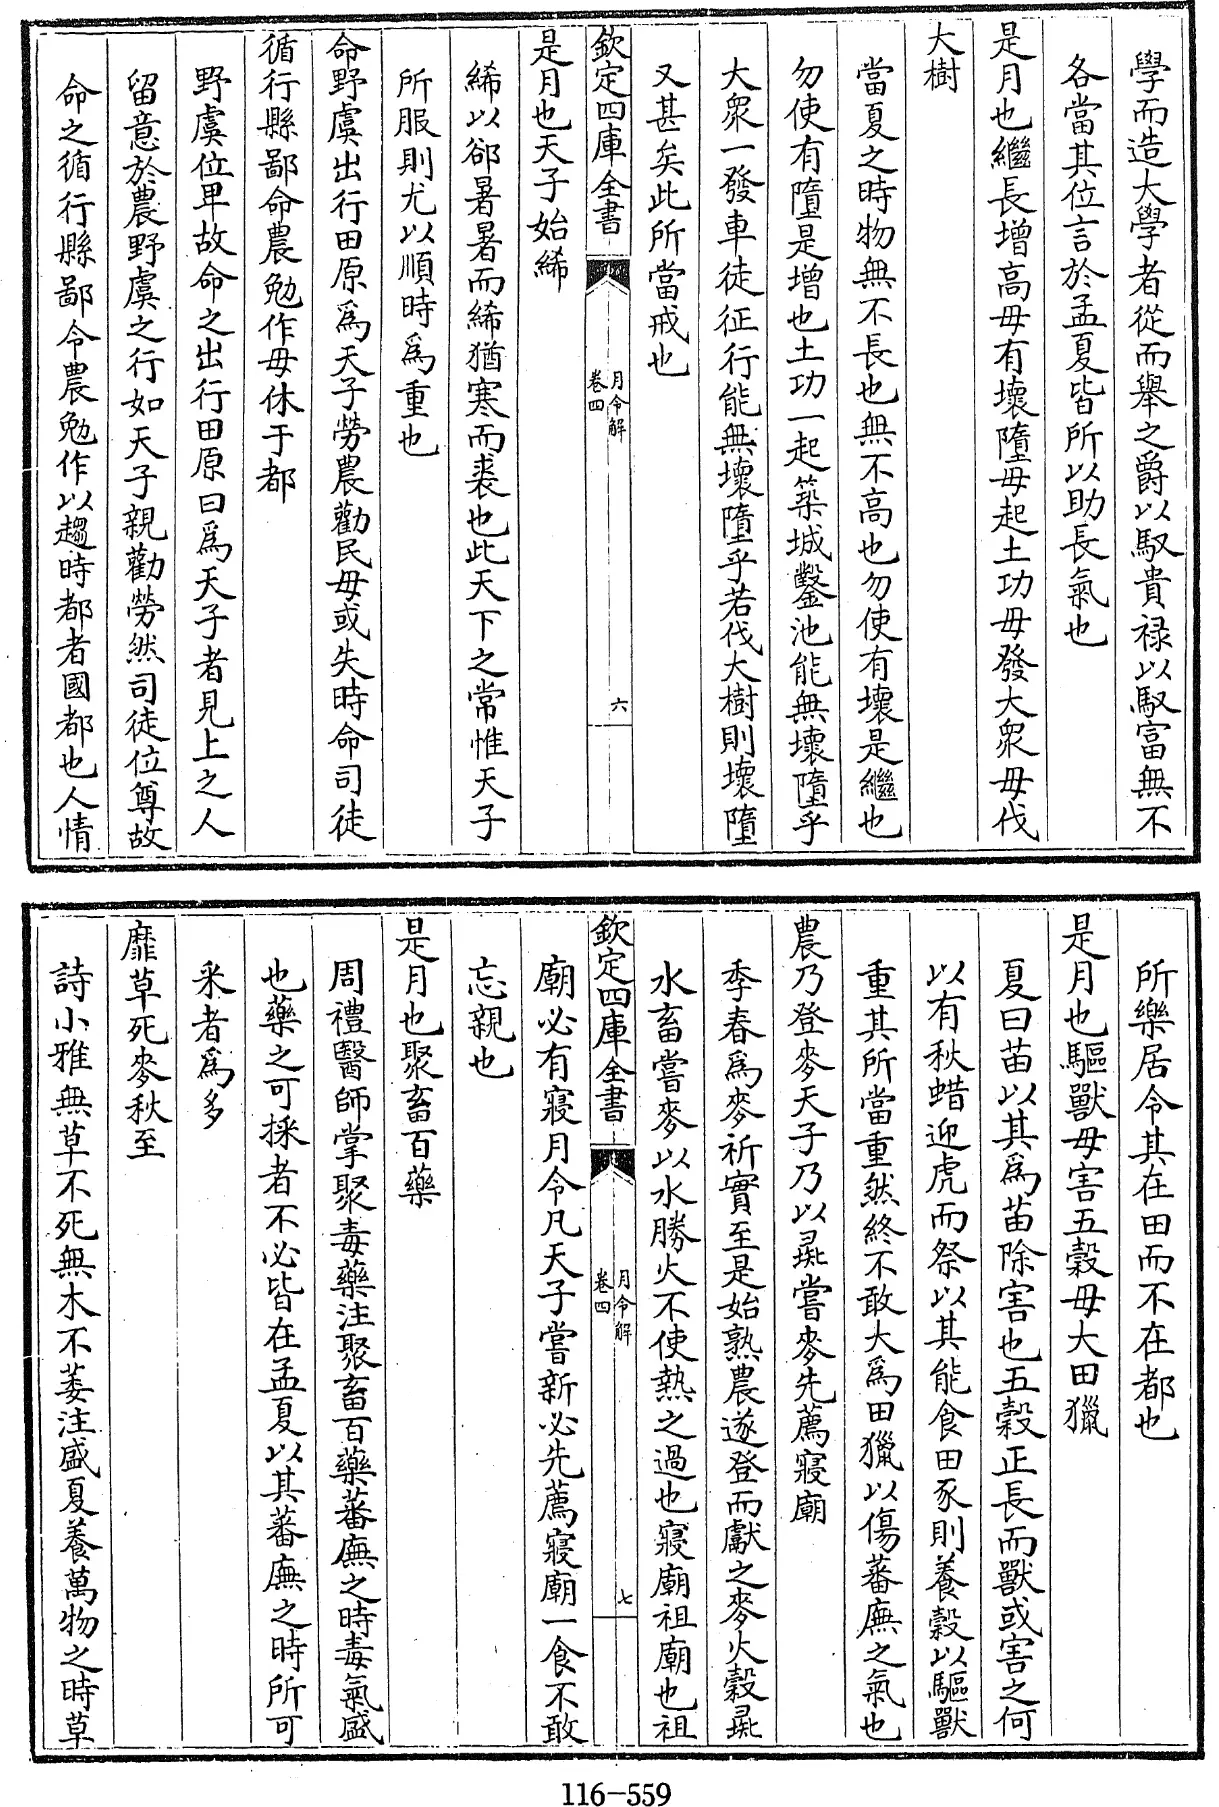 學而造大學者從而舉之爵以馭貴禄以馭富無不
各當其位言於孟夏皆所以助長氣也
是月也繼長增高毋有壞墮毋起土功毋發大衆毋伐
大樹
當夏之時物無不長也無不高也勿使有壞是繼也
勿使有墮是增也土功一起築城鑿池能無壞墮乎
大衆一發車徒征行能無壞墮乎若伐大樹則壞墮
又甚矣此所當戒也
欽定四庫全書
月令解
卷四
六
是月也天子始絺
絺以郤暑暑而絺猶寒而裘也此天下之常惟天子
所服則尤以順時為重也
命野虞出行田原為天子勞農勸民毋或失時命司徒
循行縣鄙命農勉作毋休于都
野虞位卑故命之出行田原曰為天子者見上之人
留意於農野虞之行如天子親勸勞然司徒位尊故
命之循行縣鄙令農勉作以趨時都者國都也人情
所樂居令其在田而不在都也
是月也驅獸毋害五穀毋大田獵
夏曰苗以其為苗除害也五穀正長而獸或害之何
以有秋蜡迎虎而祭以其能食田豕則養穀以驅獸
重其所當重然終不敢大為田獵以傷蕃廡之氣也
農乃登麥天子乃以彘嘗麥先薦寢廟
季春為麥祈實至是始熟農遂登而獻之麥火穀彘
水畜嘗麥以水勝火不使熱之過也寢廟祖廟也祖
欽定四庫全書
月令解
卷四
七
廟必有寢月令凡天子嘗新必先薦寢廟一食不敢
忘親也
是月也聚畜百藥
周禮醫師掌聚毒藥注聚畜百藥蕃廡之時毒氣盛
也藥之可採者不必皆在孟夏以其蕃廡之時所可
采者為多
靡草死麥秋至
詩小雅無草不死無木不萎注盛夏養萬物之時草
116-559